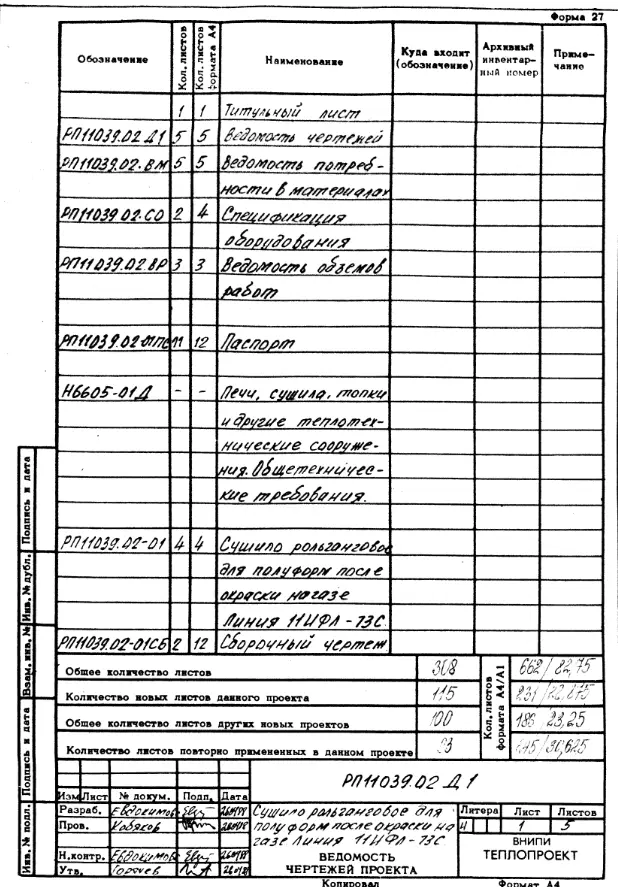 Форма 27
Обозначение Кол. листов Кол. листов формата А4 Наименование Куда входит (обозначение) Архивный инвентарный номер Примечание
1 1 Титульный лист
РП11039.02 Д1 5 5 Ведомость чертежей
РП11039.02.ВМ 5 5 Ведомость потреб-
ности в материалах
РП11039.02.СО 2 4 Спецификация
оборудования
РП11039.02.ВР 3 3 Ведомость объемов
работ
РП11039.02-01ПС 11 12 Паспорт
Н6605-01Д - - Печи, сушила, топки
и другие теплотех-
нические сооруже-
ния. Общетехничес-
кие требования.
РП11039.02-01 4 4 Сушило рольганговое
для полуформ после
окраски на газе
Линия 11ЦФЛ-73С
РП11039.02-01СБ 2 12 Сборочный чертеж
Общее количество листов 308
Количество новых листов данного проекта 115
Общее количество листов других новых проектов 100
Количество листов повторно примененных в данном проекте 93
Кол. листов формата А4/А1
662/82,75
186/23,25
РП11039.02 Д1
Изм Лист № докум. Подп. Дата
Разраб. Евдокимов
Пров.
Н.контр. Евдокимов
Утв. Горячев
Сушило рольганговое для
полуформ после окраски на
газе Линия 11ЦФЛ-73С
ВЕДОМОСТЬ
ЧЕРТЕЖЕЙ ПРОЕКТА
Литера Лист Листов
И 1 5
ВНИПИ
ТЕПЛОПРОЕКТ
Копировал Формат А4
Инв. № подл. Подпись и дата Взам. инв. № Инв. № дубл. Подпись и дата